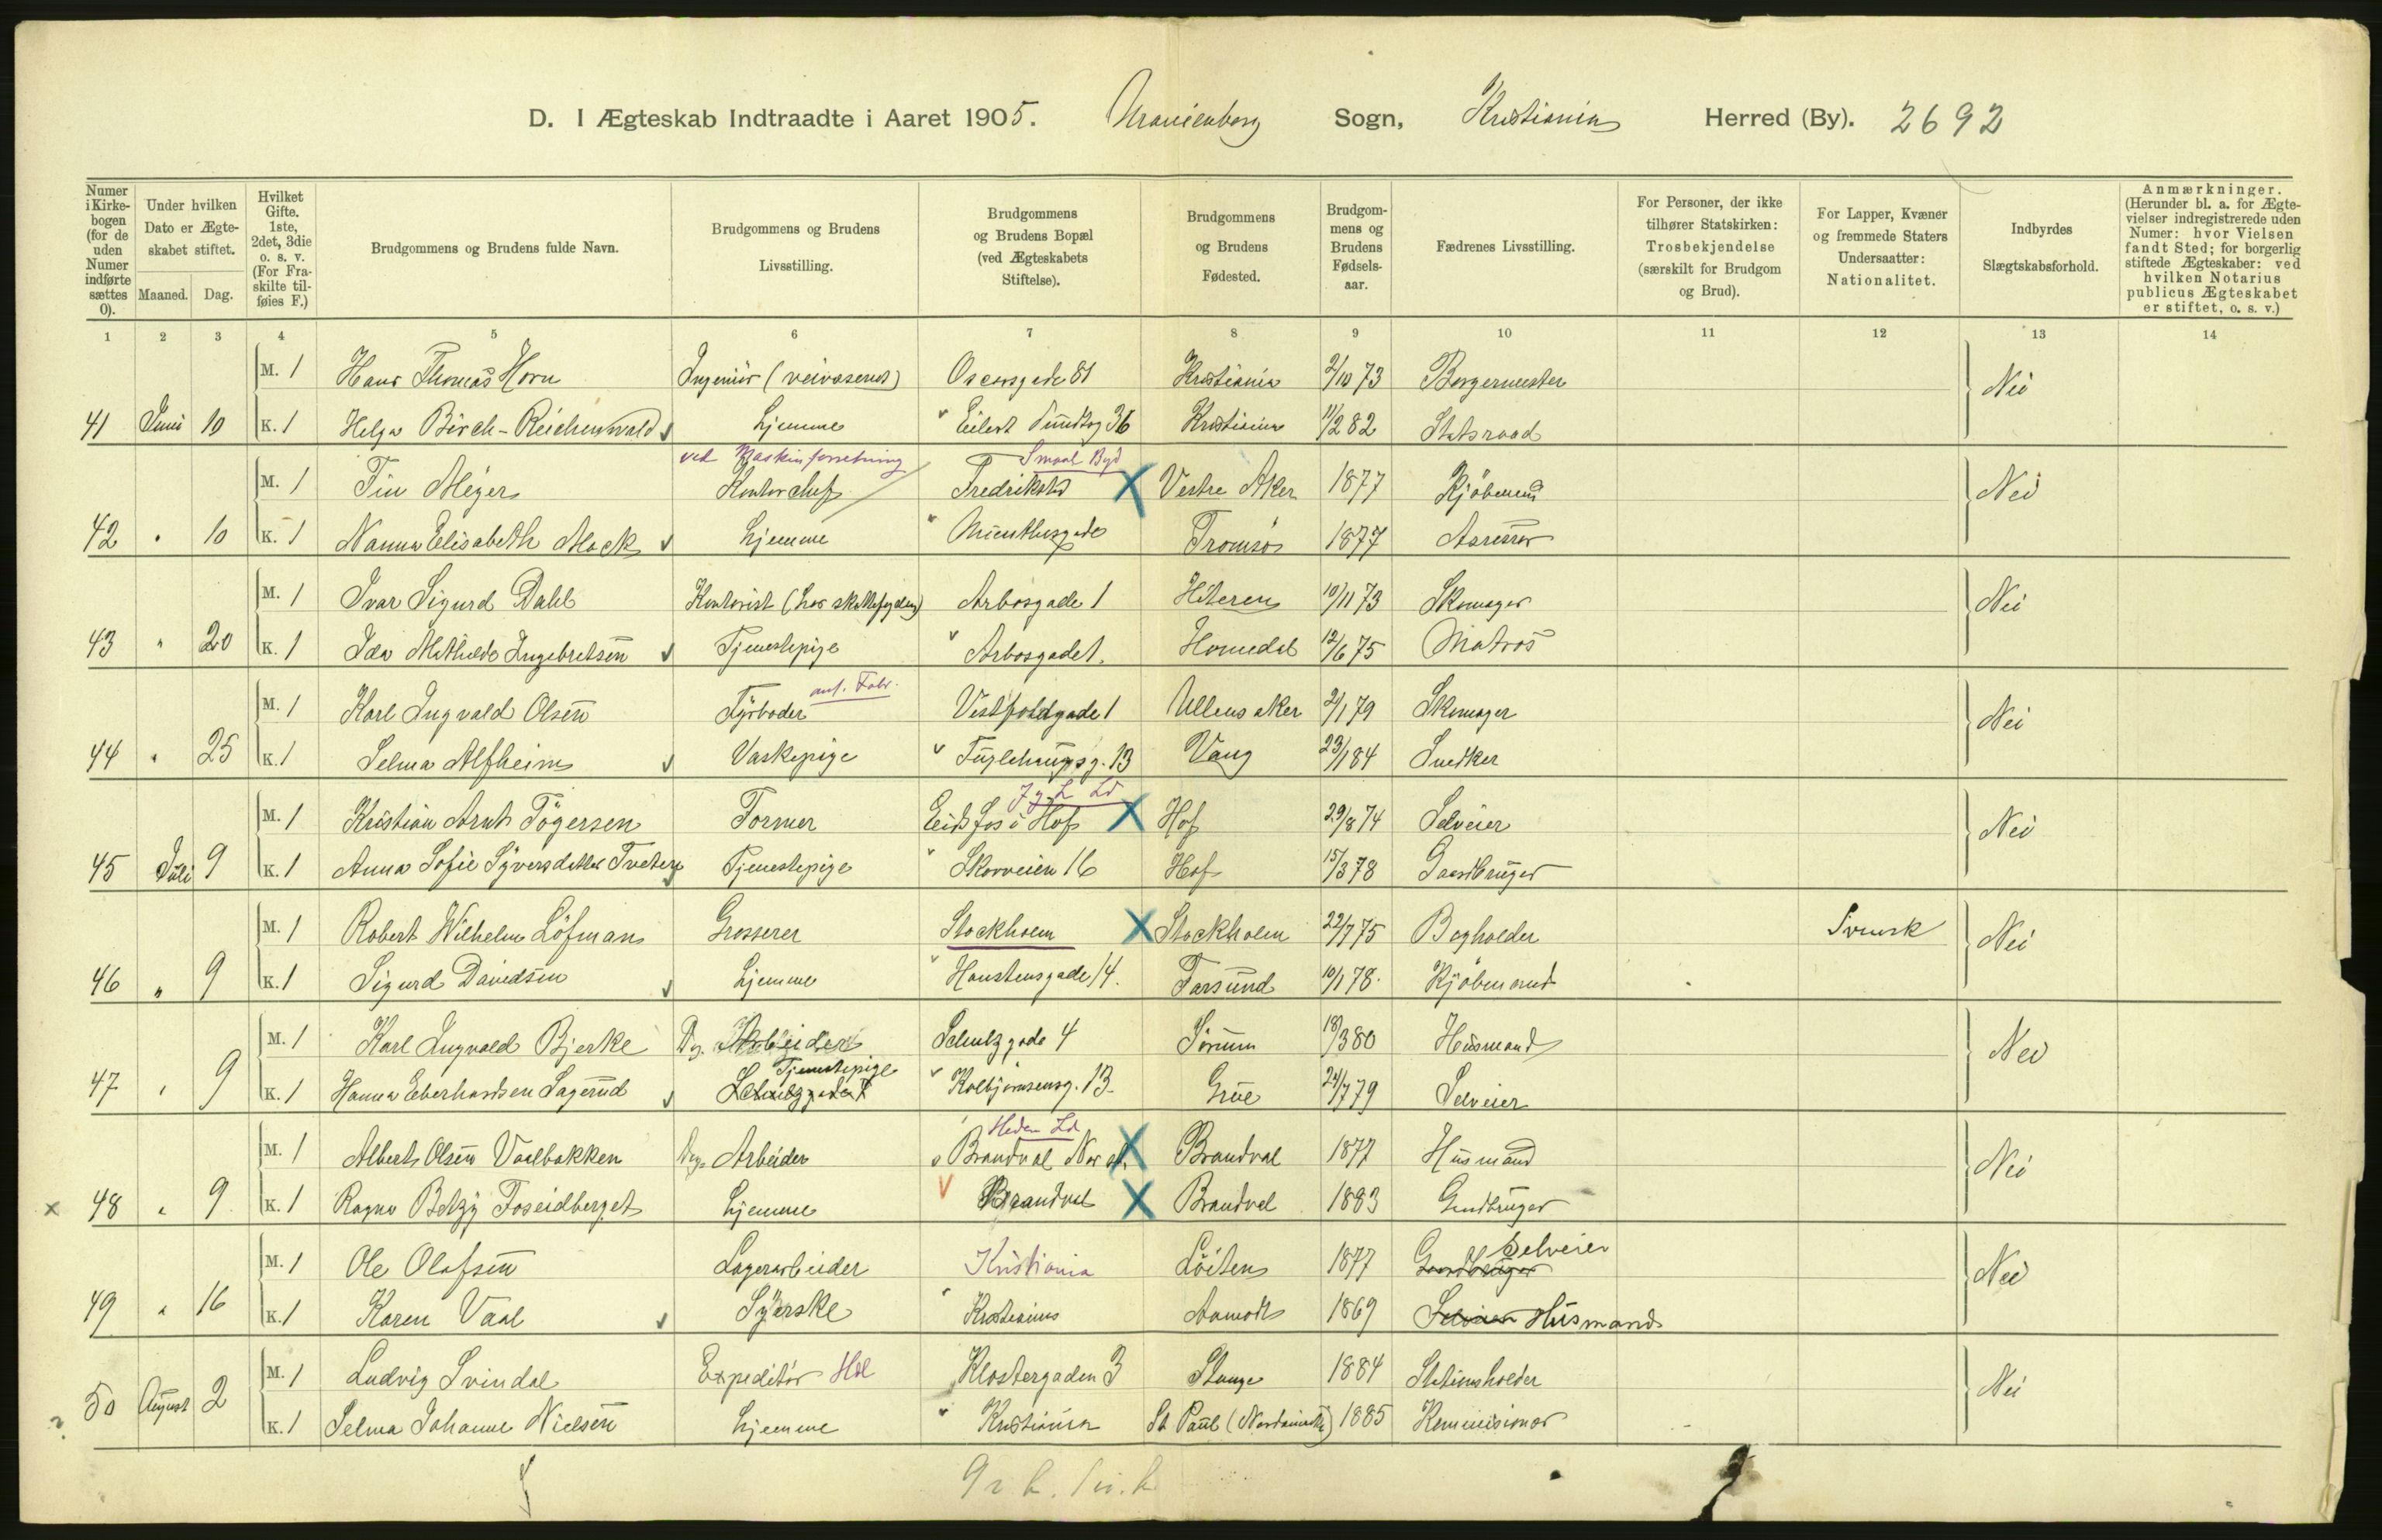 D. I Ægteskab Indtraadte i Aaret 1905. Uranienborg Sogn, Kristiania Herred (By). 2692
Numer i Kirkebogen (for de uden Numer indførte sættes 0).
Under hvilken Dato er Ægteskabet stiftet.
Maaned. Dag.
Hvilket Gifte. 1ste, 2det, 3die o. s. v. (For Fraskilte tilføies F.)
Brudgommens og Brudens fulde Navn.
Brudgommens og Brudens Livsstilling.
Brudgommens og Brudens Bopæl (ved Ægteskabets Stiftelse).
Brudgommens og Brudens Fødested.
Brudgommens og Brudens Fødselsaar.
Fædrenes Livsstilling.
For Personer, der ikke tilhører Statskirken: Trosbekjendelse (særskilt for Brudgom og Brud).
For Lapper, Kvæner og fremmede Staters Undersaatter: Nationalitet.
Indbyrdes Slægtskabsforhold.
Anmærkninger. (Herunder bl. a. for Ægtevielser indregistrerede uden Numer: hvor Vielsen fandt Sted; for borgerlig stiftede Ægteskaber: ved hvilken Notarius publicus Ægteskabet er stiftet, o. s. v.)
1 2 3 4 5 6 7 8 9 10 11 12 13 14
M. 1 Hans Thomas Horn Ingeniör (veivæsenet) Oscarsgade 81 Kristiania 2/10 73 Borgermester Nei
41 Juni 10 K. 1 Helga Birch-Reichenwald Hjemme Eilert Sundtsg 36 Kristiania 11/2 82 Statsraad
ved Maskinforretning Smaal Byd
M. 1 Finn Meyer Kontorchef Fredrikstd X Vestre Aker 1877 Kjöbmand Nei
42 " 10 K. 1 Nanna Elisabeth Mack Hjemme Munthesgade Tromsö 1877 Assessor
M. 1 Ivar Sigurd Dahl Kontorist (hos skattefogden) Arbosgade 1 Hiteren 10/11 73 Skomager Nei
43 " 20 K. 1 Ida Mathilde Ingebretsen Tjenestepige Arbosgade 1. Homedal 12/6 75 Matros
M. 1 Karl Ingvald Olsen Fyrböder ant. Fabr. Vestfoldgade 1 Ullensaker 2/1 79 Skomager Nei
44 " 25 K. 1 Selma Alfheim Vaskepige Fuglehaugsg. 13 Vang 23/1 84 Snedker
M. 1 Kristian Arnt Tögersen Former Eidsfos i Hof X Hof 29/8 74 Selveier Nei
45 Juli 9 K. 1 Anna Sofie Syversdatter Tveten Tjenestepige Skovveien 16 Hof 15/3 78 Gaardbruger
M. 1 Robert Wilhelm Löfman Grosserer Stockholm X Stockholm 22/7 75 Bogholder Svensk Nei
46 " 9 K. 1 Sigurd Davidsen Hjemme Hanstensgade 14. Farsund 10/1 78. Kjöbmand
M. 1 Karl Ingvald Bjerke Dg. Arbeider Schultzgade 4 Sörum 18/3 80 Husmand Nei
47 " 9 K. 1 Hanna Eberhardsen Sagerud Schultzgade 7 Tjenestepige Kolbjörnsensg. 13. Grue 24/7 79 Selveier
Hedm Ld
M. 1 Albert Olsen Vaelbakken Dag. Arbeider Brandval X Brandval 1877 Husmand Nei
x 48 " 9 K. 1 Ragna Betzy Foseidberget Hjemme Brandval X Brandval 1883 Gaardbruger
M. 1 Ole Olafsen Lagerarbeider Kristiania Löiten 1877 Gaardbruger Selveier Nei
49 " 16 K. 1 Karen Vaal Syerske Kristiania Aamodt 1869 Selveier Husmand
M. 1 Ludvig Svindal Expeditör Hdl Klostergaden 3 Stange 1884 Stationsholder Nei
50 August 2 K. 1 Selma Johanne Nielsen Hjemme Kristiania St Paul (Nordamerika) 1885 Kommisionær